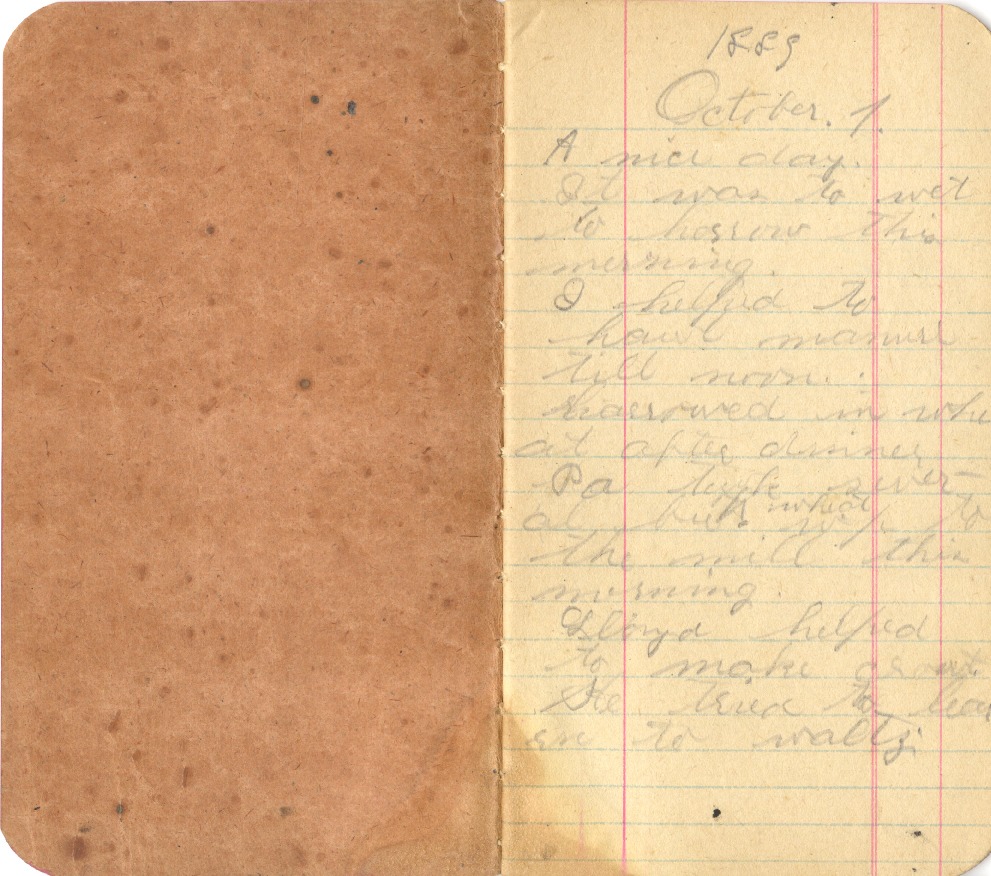 1889
October. 1.
A nice day.
It was to wet
to harrow this
morning.
I helped to
haul manure
till noon.
Harrowed in whe
at after dinner
Pa tuck sever-
al wheat to
the mill this
morning.
Lloyd helped
to make
He tried to lear
en to waltz.